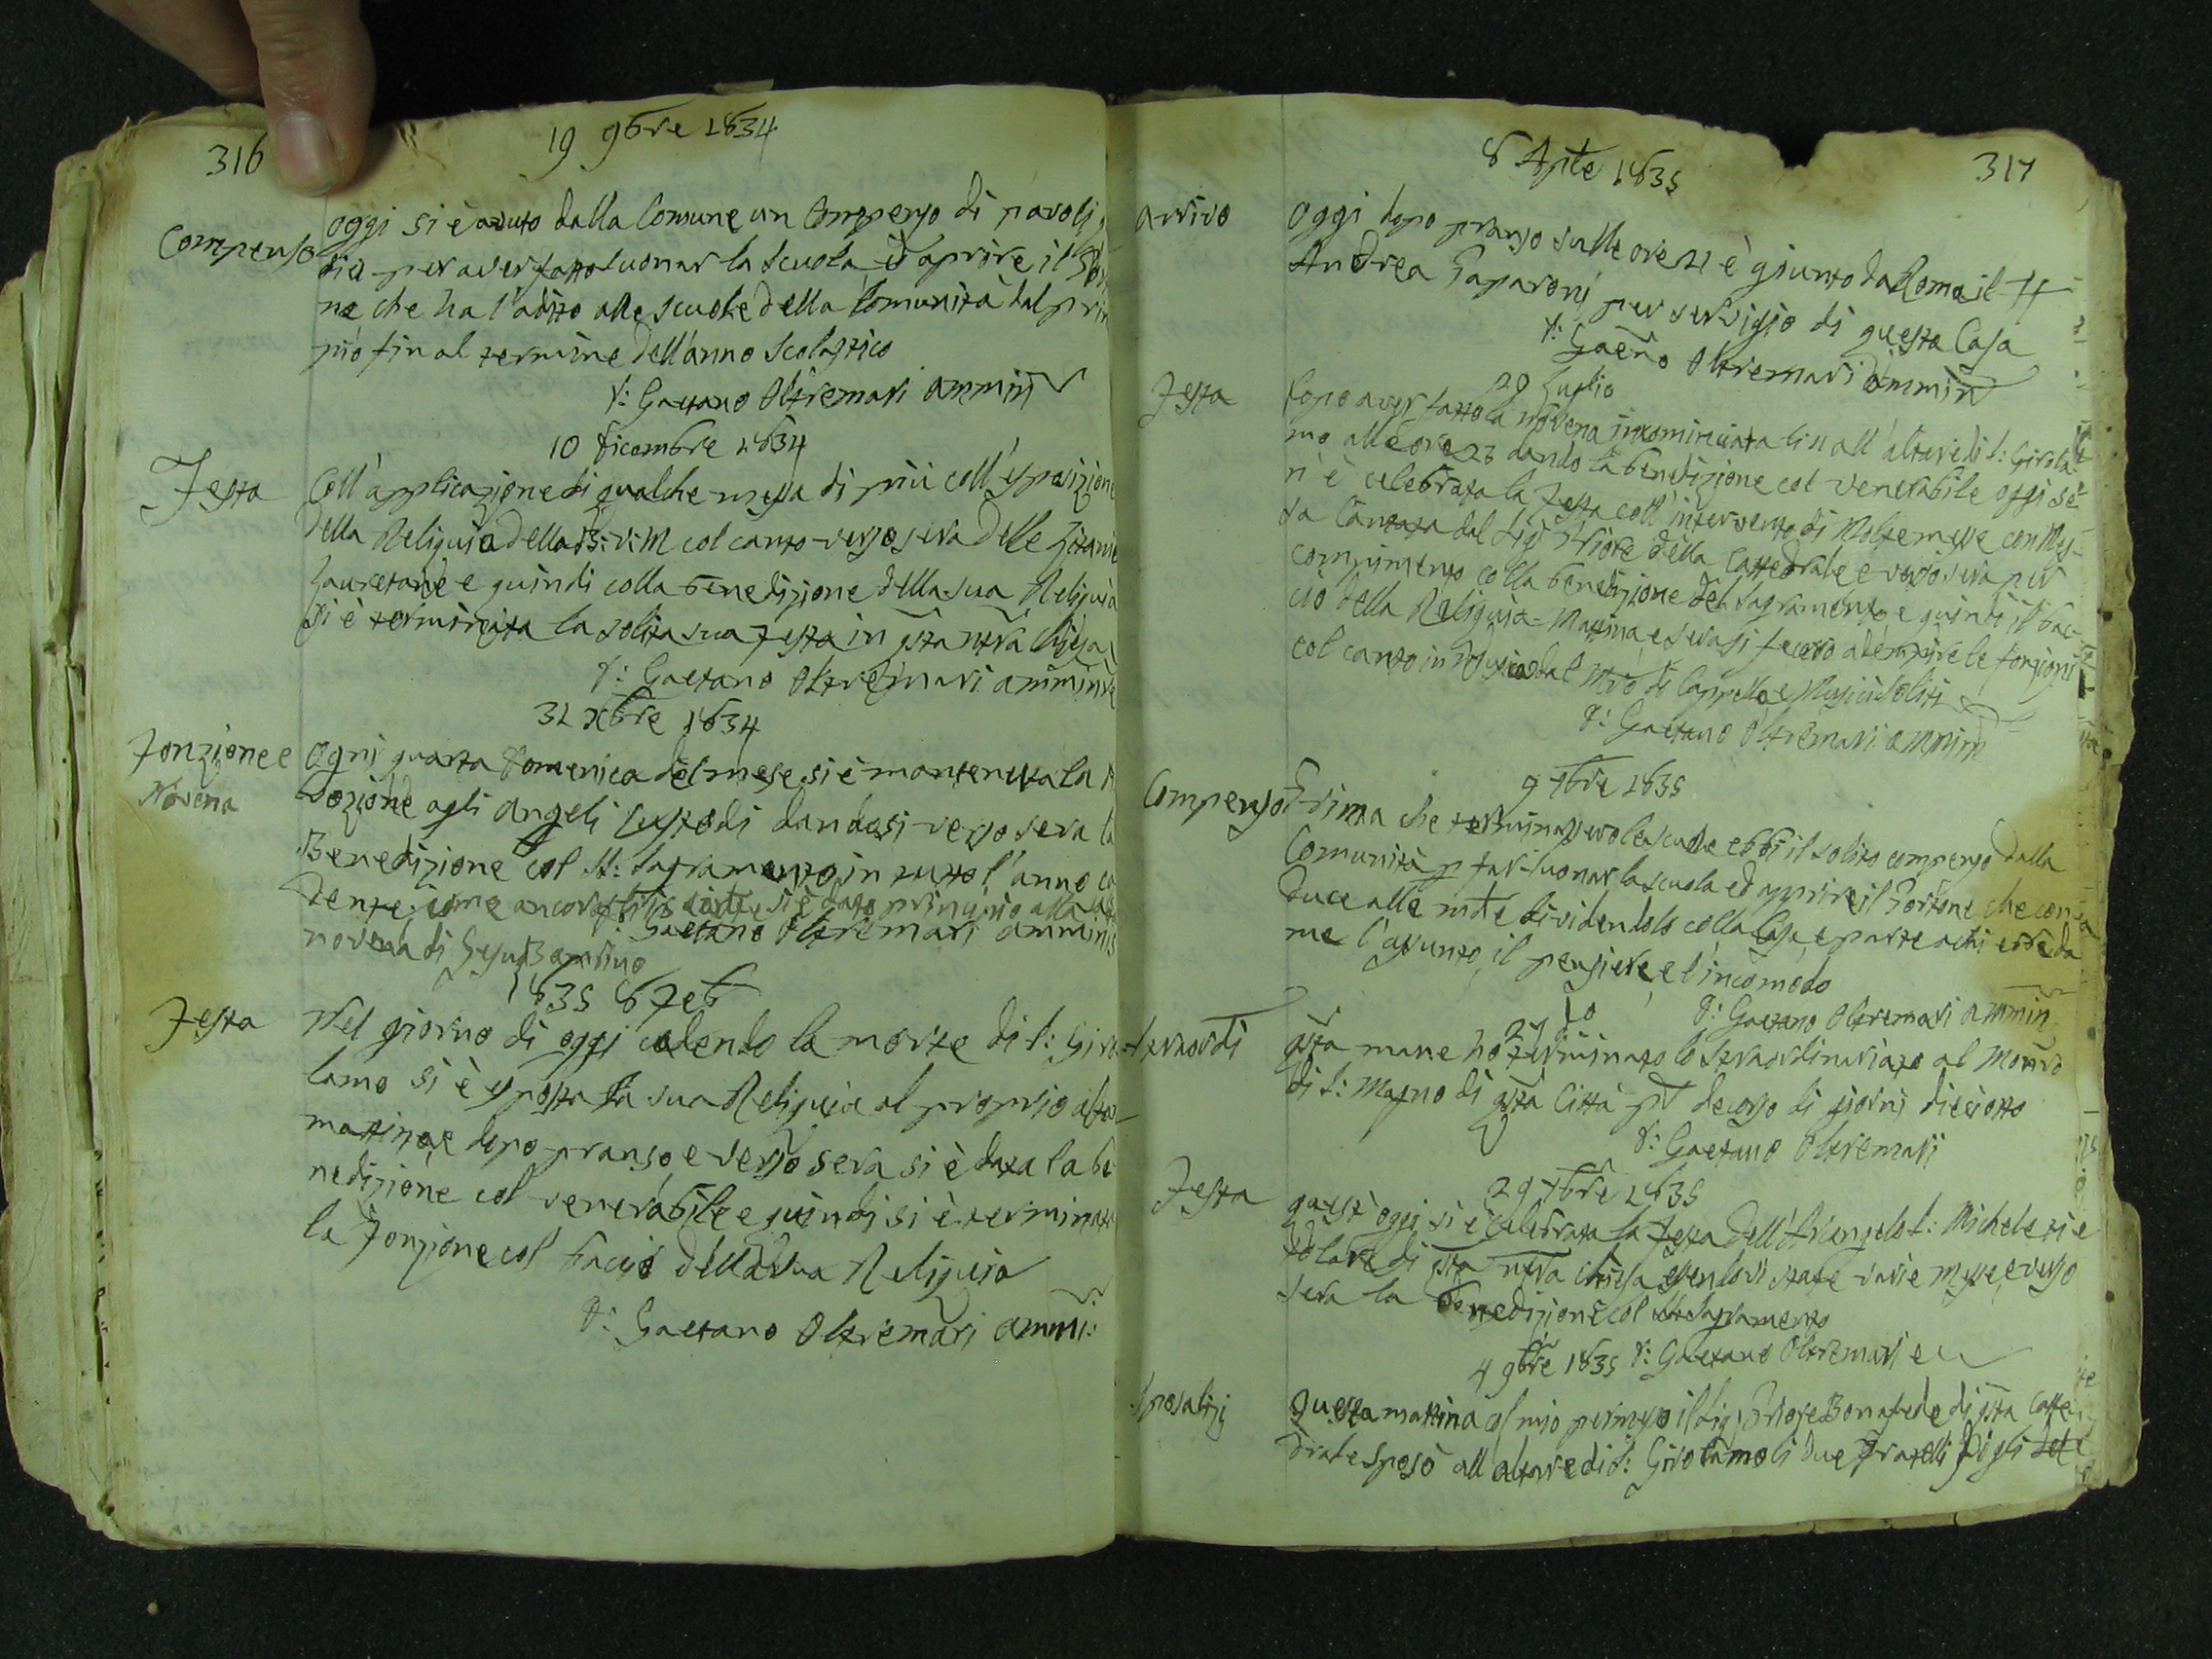 316
19 9bre 1834
Compenso
oggi si è avuto dalla Comune un Compenso di paoli
per aver fatto suonar la scuola ed aprire il
ne che ha l'adito alle scuole della Comunità dal prin
pio fin al termine dell'anno Scolastico
Gaetano Oltremari ammin
10 Dicembre 1834
Festa
Coll'applicazione di qualche messa di più coll'esposizione
della Reliquia della col canto verso sera delle Litanie
Lauretane e quindi colla benedizione della sua Reliquia
si è terminata la solita sua festa in qsta ntra Chiesa
Gaetano Oltremari ammin
31 Xbre 1834
Fonzione e
Novena
Ogni quarta Domenica del mese si è mantenuta la
vozione agli Angeli Custodi dandosi verso sera la
Benedizione col SS: Sagramento in tutto l'anno ca
dente, come ancora si è dato principio alla
Gaetano Oltremari ammin
novena di Gesù Bambino
1835 8 Feb
Festa
Nel giorno di oggi cadendo la morte di S: Giro
lamo si è esposta la sua Reliquia al proprio altar
mattina, e dopo pranso, e verso sera si è data la be
nedizione col venerabile e quindi si è terminata
la fonzione col bacio della sua Reliquia
Gaetano Oltremari ammi:
317
8 Aple 1835
Arrivo
Oggi dopo pranso sulle ore 21 è giunto da Roma il
Andrea Gaparonj per servigio di questa Casa
Gaeño Oltremari ammin
20 Luglio
Festa
Dopo aver fatto la novena incominciata li 11 all'altare di S: Girola
mo alle ore 23 dando la benedizione col venerabile oggi se
n'è celebrata la Festa coll'intervento di Molte messe con Mes-
sa Cantata dal Sigr Priore della Cattedrale e verso sera per
compimento colla benedizione del Sagramento e quindi il bac-
cio della Reliquia. Mattina e sera si fecero adempire le fonzioni
col canto in Musica dal Mro di Cappella e Musici soliti
Gaetano Oltremari ammin
9 7bre 1835
Compenso
Prima che terminassero le scuole ebbi il solito compenso dalla
Comunità p far suonar la scuola ed apprire il Portone che con
duce alle mde dividendolo colla Casa, e parte a chi erreda
me l'asunto, il pensiere, e l'incomodo
Gaetano Oltremari ammin
27 do
straordi
qsta mane ho terminato lo straordinariato al Monro
di S: Magno di qsta Città pl decorso di giorni dieciotto
Gaetano Oltremari
29 7bre 1835
Festa
quest'oggi si è celebrata la festa dell'Arcangelo S: Michele ti
tolare di qsta ntra Chiesa essendovi state varie messe, e verso
sera la Benedizione col Sagramento
4 9bre 1835 Gaetano Oltremari
sposalizj
Questa mattina col mio permesso il Sigr Priore Bonafede di qsta Catte
drale sposò all'altare di S: Girolamo li due Fratelli Figli del